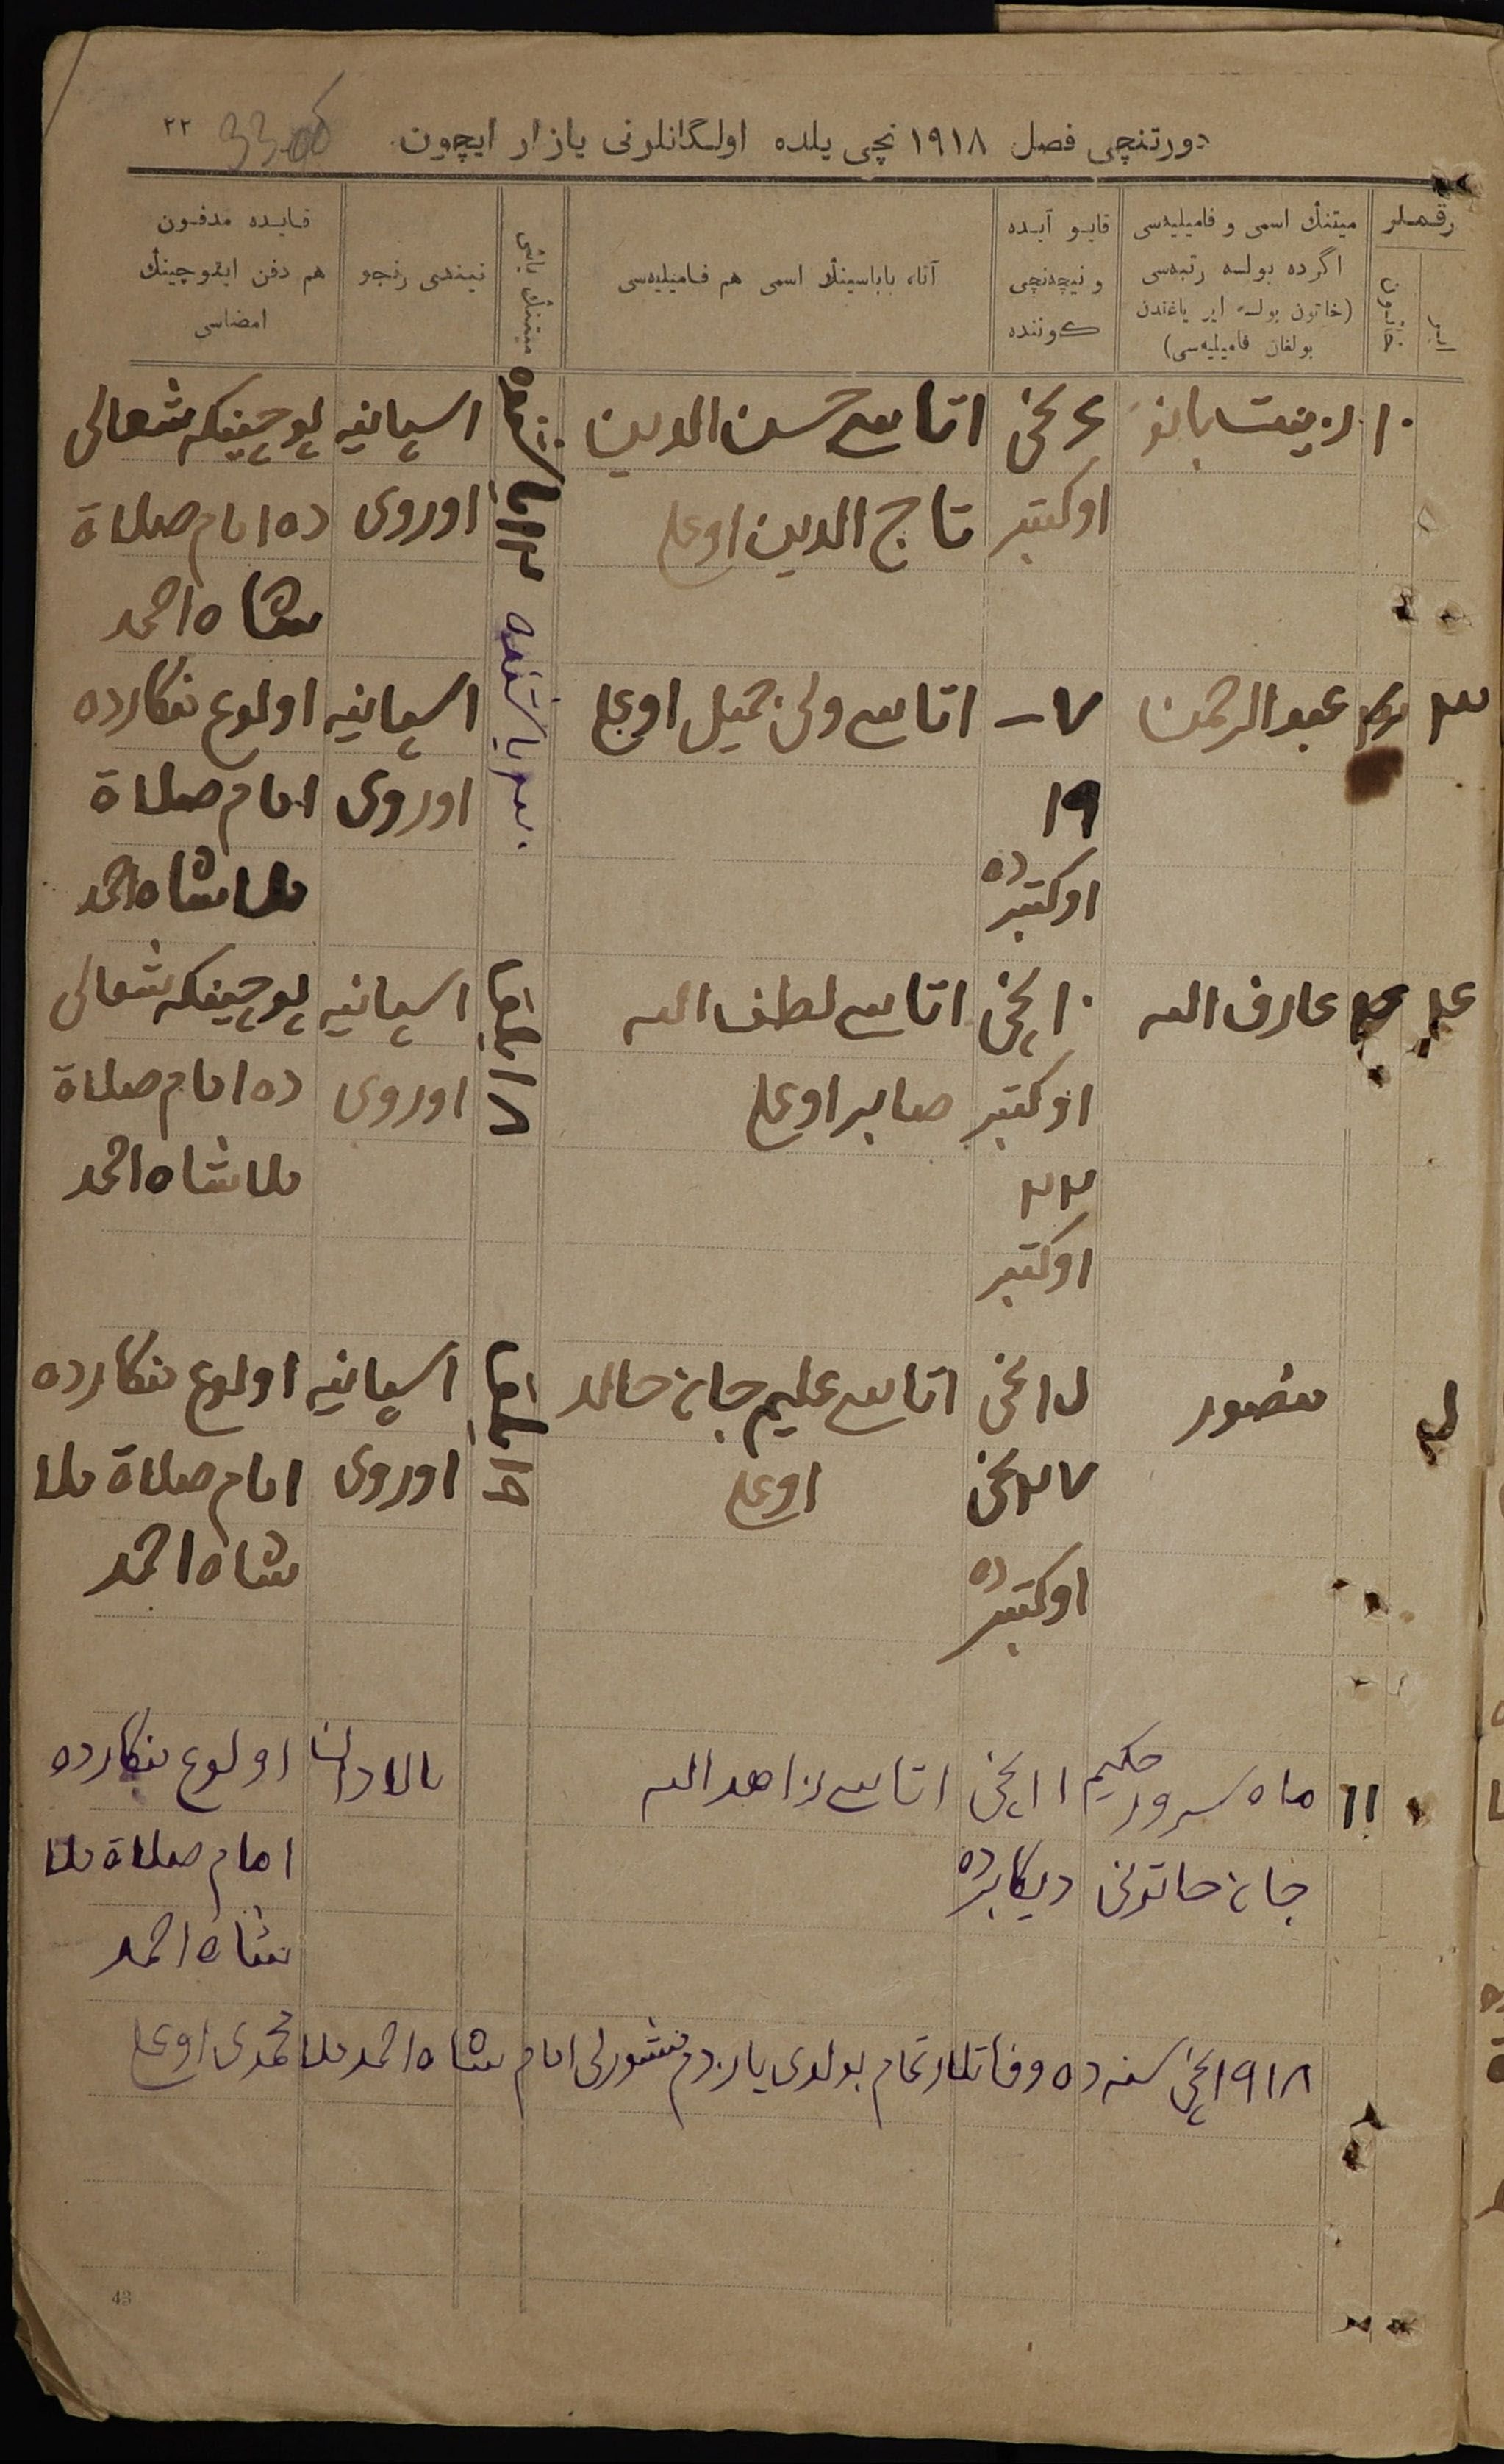 دورتنچی فصل ۱۹۱۸ نچی یلده اولگانلرنی یازار ایچون
۲۲
رقملر
ایر
خاتون
میتنڭ اسمی و فامیلیه‌سی
اگرده بولسه رتبه‌سی
(خاتون بولسه ایر یاغندن
بولغان فامیلیه‌سی)
قایو آیده
و نیچه‌نچی
کوننده
آتا، باباسینڭ اسمی هم فامیلیه‌سی
میتنڭ یاشی
نیندی رنجو
قایده مدفون
هم دفن ایقوچینڭ
امضاسی
۱۰ زینت بانو
۶ نچی
اوکتبر
اتاسی حسن الدین
تاج الدین اوغلی
اسپانیه
اوروی
شمالی
ده امام صلاة
شاه احمد
۳ عبد الرحمن
۷ -
۱۹
اوکتبرده
اتاسی ولی جمیل اوغلی
اسپانیه
اوروی
اولوغ
امام صلاة
ملا شاه احمد
عارف الله
۱۰ نچی
اوکتبر
۲۳
اوکتبر
اتاسی لطف الله
صابر اوغلی
اسپانیه
اوروی
شمالی
ده امام صلاة
ملا شاه احمد
منصور
نچی
۲۷ نچی
اوکتبرده
اتاسی علیم جان خالد
اوغلی
اسپانیه
اوروی
اولوغ
امام صلاة ملا
شاه احمد
۱۱ ماه سرور حکیم
جان خاتونی
۱۱ نچی
دیکابرده
اتاسی زاهد الله
بالادان
اولوغ
امام صلاة ملا
شاه احمد
۱۹۱۸ نچی سنه ده وفاتلار تمام بولدی یازدم امام شاه احمد ملا محمدی اوغلی
43